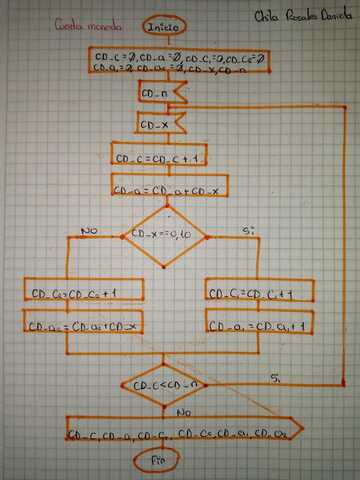 Cuenta moneda
Inicio
Chila Rosales Daniela
CD_C=0,CD_a=0,CD_C1=0,CD_C2=0
CD_a1=0,CD_a2=0,CD_x,CD_n
CD_n
CD_x
CD_C=CD_C+1
CD_a=CD_a+CD_x
NO
CD_x==0,10
Si
CD_C2=CD_C2+1
CD_C1=CD_C1+1
CD_a2=CD_a2+CD_x
CD_a1=CD_a1+1
CD_C<CD_n
Si
No
CD_C,CD_a,CD_C1,CD_C2,CD_a1,CD_a2
Fin